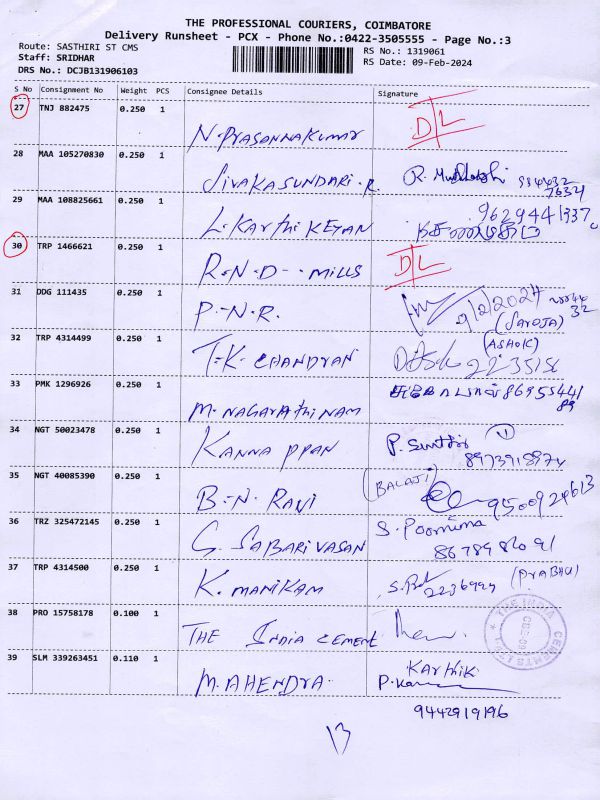 THE PROFESSIONAL COURIERS, COIMBATORE
Delivery Runsheet - PCX - Phone No.:0422-3505555 - Page No.:3
Route: SASTHIRI ST CMS
RS No.: 1319061
Staff: SRIDHAR
RS Date: 09-Feb-2024
DRS No.: DCJB131906103
S No Consignment No Weight PCS Consignee Details Signature
27 TNJ 882475 0.250 1
N. PRASANNAKUMAR D/L
28 MAA 105270830 0.250 1
SIVAKASUNDARI.R.
29 MAA 108825661 0.250 1
L. KARTHIKEYAN 9629441337
30 TRP 1466621 0.250 1
R.N.D-- MILLS D/L
31 DDG 111435 0.250 1
P-N.R. 9/2/2024
(SAROJA)
32 TRP 4314499 0.250 1
(ASHOK)
T.K. CHANDRAN
33 PMK 1296926 0.250 1
M. NAGARATHINAM
34 NGT 50023478 0.250 1
KANNAPPAN
35 NGT 40085390 0.250 1
(BALAJI)
B.N. RANI 9500924613
36 TRZ 325472145 0.250 1
S. Poornima
G. SABARIVASAN
37 TRP 4314500 0.250 1
K. MANIKAM (PRABHU)
38 PRO 15758178 0.100 1
THE INDIA CEMENT
39 SLM 339263451 0.110 1
KARTHIK
MAHENDRA.
9442919196
13